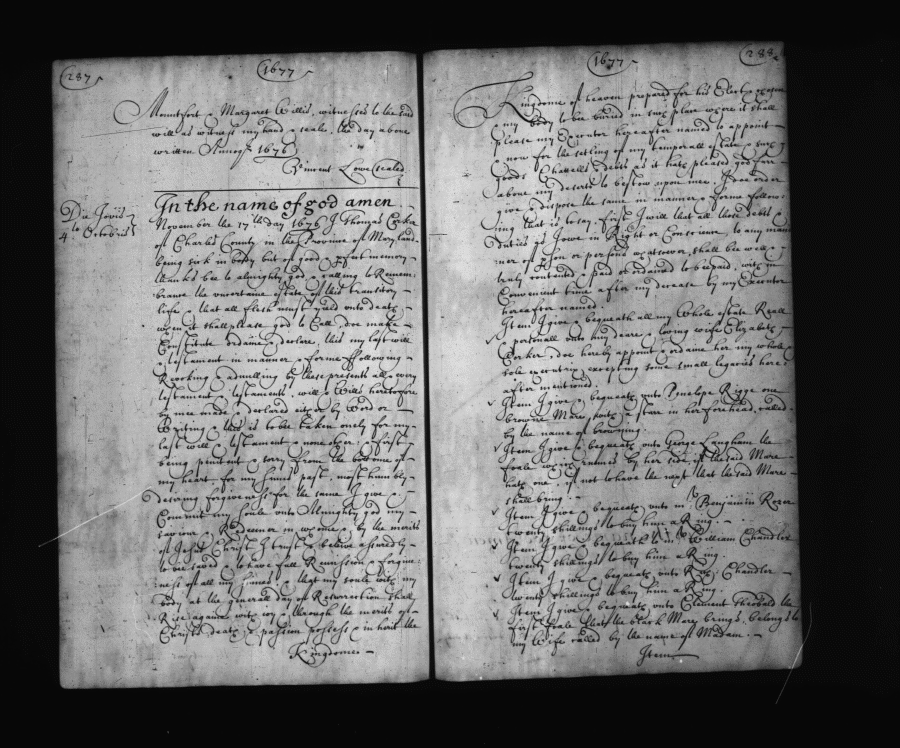 287
1677
Mountfort & Margaret Willis, witnesses to the said
will as witness my hand & seale, the day above
written Annoq 1676
Vincent Lowe (sealed
Die Jovis
4to Octobris
In the name of god amen
November the 17th day 1676 I Thomas Corker
of Charles County in the Province of Maryland
being sick in body but of good & memory
thanks bee to almighty god & calling to Remem
brance the uncertaine estate of this transitory
life & that all flesh must yeild unto death
when it shall please god to Call, doe make
Constitute ordaine & declare, this my last will
& testament in manner & forme ffollowing
Revoking & adnulling by these presents all & every
testament & testaments, will & wills heretofore
by mee made & declared either by word or
Writing & this is to be taken onely for my
last will & testament & none other: & first
being penitent & sorry from the bottome of
my heart for my sinns past, most humbly
desiring forgiveness for the same I give &
Committ my soule unto Almighty god my
saviour & Redeemer in whome & by the meritts
of Jesus Christ I trust & beleive assuredly
to be saved & to have full Remission & forgive
ness of all my sinnes & that my soule with my
body at the generall day of Resurrection shall
Rise againe with joy & through the meritts of
Christs death & passion possess & inherit the
Kingdome
1677
288
Kingdome of heaven prepared for his Elect &
& my body to be buried in such place where it shall
please my Executor hereafter named to appoint
& now for the setling of my temporall estate & such
goods Chattells & debts as it hath pleased god farr
above my deserts to bestow upon mee, I doe order
give & dispose the same in manner & forme follow
ing that is to say, first I will that all those debts &
duties as I owe in Right or Conscience, to any man
ner of pson or persons whatsoever, shall bee well &
truly contented & paid or ordained to be paid, with in
Convenient time after my decease by my Executor
hereafter named
Item I give & bequeath all my Whole estate Reall
& personall unto my deare & loving wife Elizabeth
Corker & doe hereby appoint & ordaine her my whole &
sole executrix, excepting some small legacies here
after mentioned
Item I give & bequeath unto Penelope Rigge one
browne Mare with a starr in her forehead, called
by the name of browning
Item I give & bequeath unto George Langham the
foale which runnes by her side if the said Mare
hath one, if not to have the next that the said Mare
shall bring
Item I give & bequeath unto mr Benjamin Rozer
twenty shillings to buy him a Ring
Item I give & bequeath unto William Chandler
twenty shillings to buy him a Ring
Item I give & bequeath unto Chandler
twenty shillings to buy him a Ring
Item I give & bequeath unto Clement Theobald the
first foale that the black Mare brings, belongs to
my Wife called by the name of Madam
Item